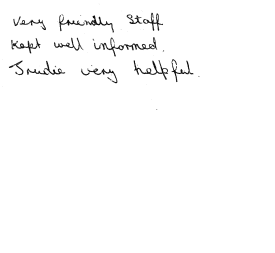 Very friendly Staff
Kept well informed.
Trudie very helpful.